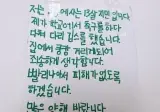 저는 에사는 13살 지민 입니다.
제가 학교에서 축구를 하다
다쳐 다리 깁스를 했습니다.
집에서 쿵쿵 거리게되어
죄송하게 생각합니다.
빨리나아서 피해가 없도록
하겠습니다.
만은 양해 바랍니다.